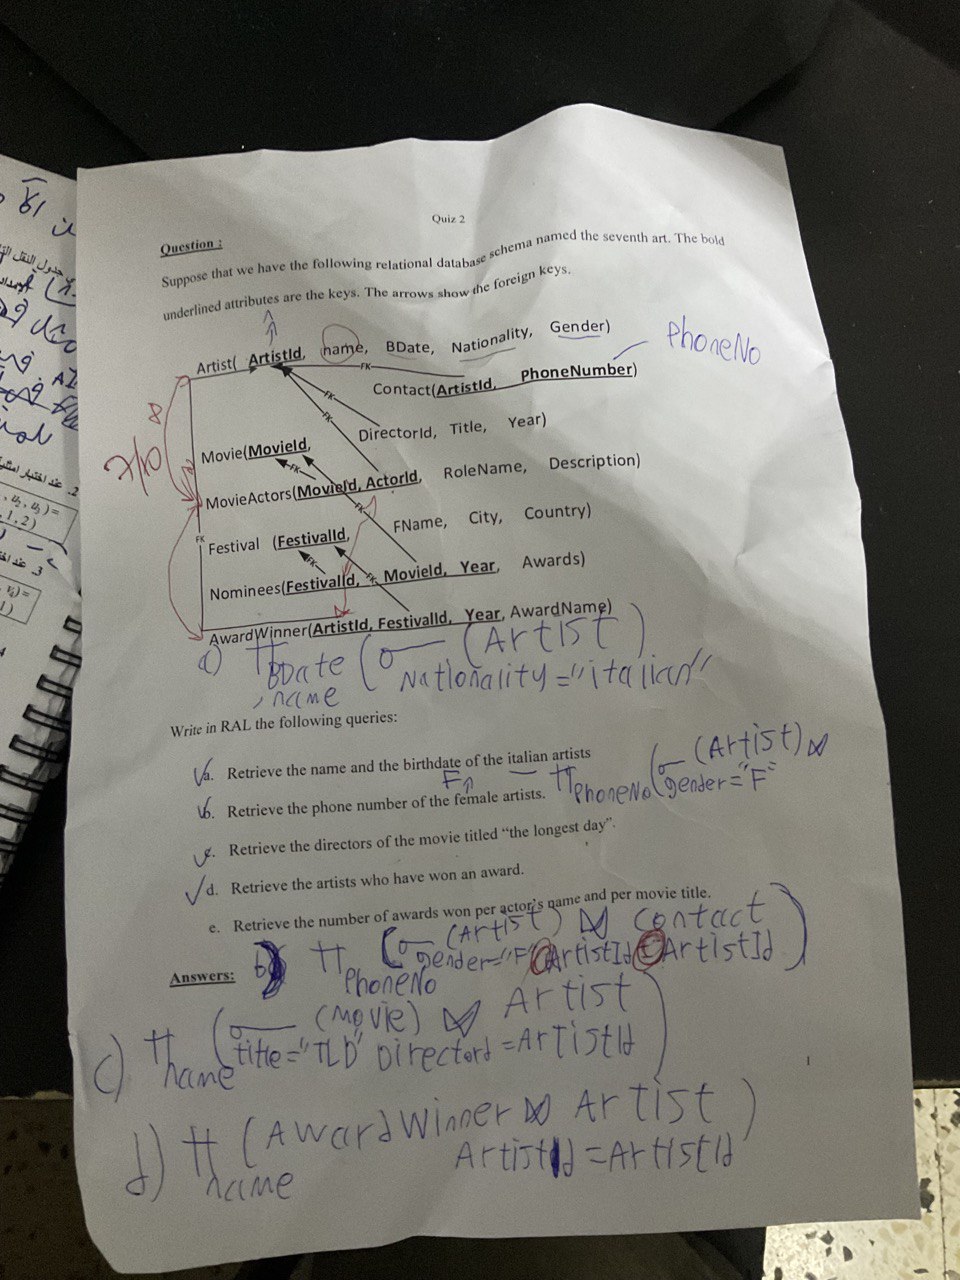 Quiz 2
Question :
Suppose that we have the following relational database schema named the seventh art. The bold
underlined attributes are the keys. The arrows show the foreign keys.
Artist( ArtistId, name, BDate, Nationality, Gender)
PhoneNo
FK
Contact(ArtistId, PhoneNumber)
FK
FK
Movie(MovieId, DirectorId, Title, Year)
FK
MovieActors(MovieId, ActorId, RoleName, Description)
FK
FK
Festival (FestivalId, FName, City, Country)
FK
FK
Nominees(FestivalId, MovieId, Year, Awards)
AwardWinner(ArtistId, FestivalId, Year, AwardName)
a) π BDate, name (σ Nationality="italian" (Artist)
Write in RAL the following queries:
a. Retrieve the name and the birthdate of the italian artists
F
b. Retrieve the phone number of the female artists.
π PhoneNo (σ gender="F" (Artist) ⋈
c. Retrieve the directors of the movie titled “the longest day”.
d. Retrieve the artists who have won an award.
e. Retrieve the number of awards won per actor's name and per movie title.
Answers:
b) π PhoneNo (σ gender="F" (Artist) ⋈ ArtistId=ArtistId Contact)
c) π name (σ title="TLD" (Movie) ⋈ Directord=ArtistId Artist)
d) π name (AwardWinner ⋈ ArtistId=ArtistId Artist)